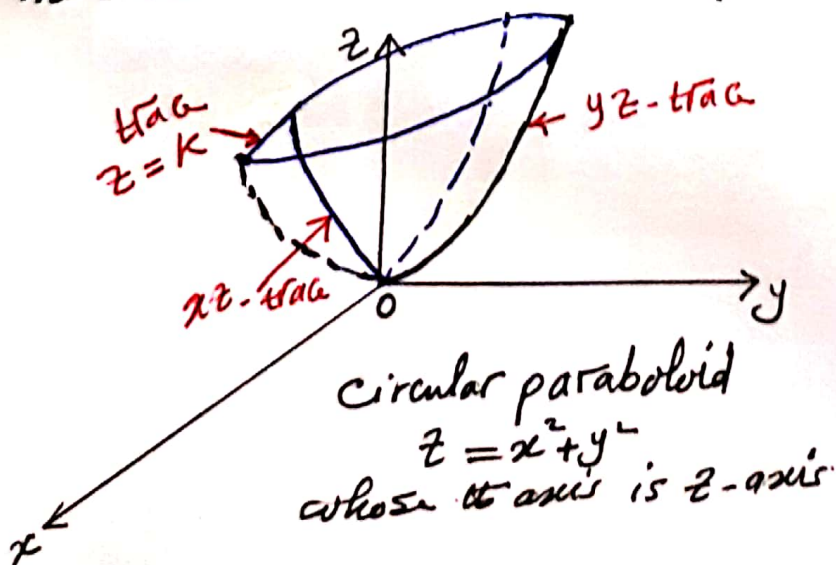 z
trac
z = k
yz-trac
xz-trac
o
y
x
Circular paraboloid
z = x² + y²
whose axis is z-axis.